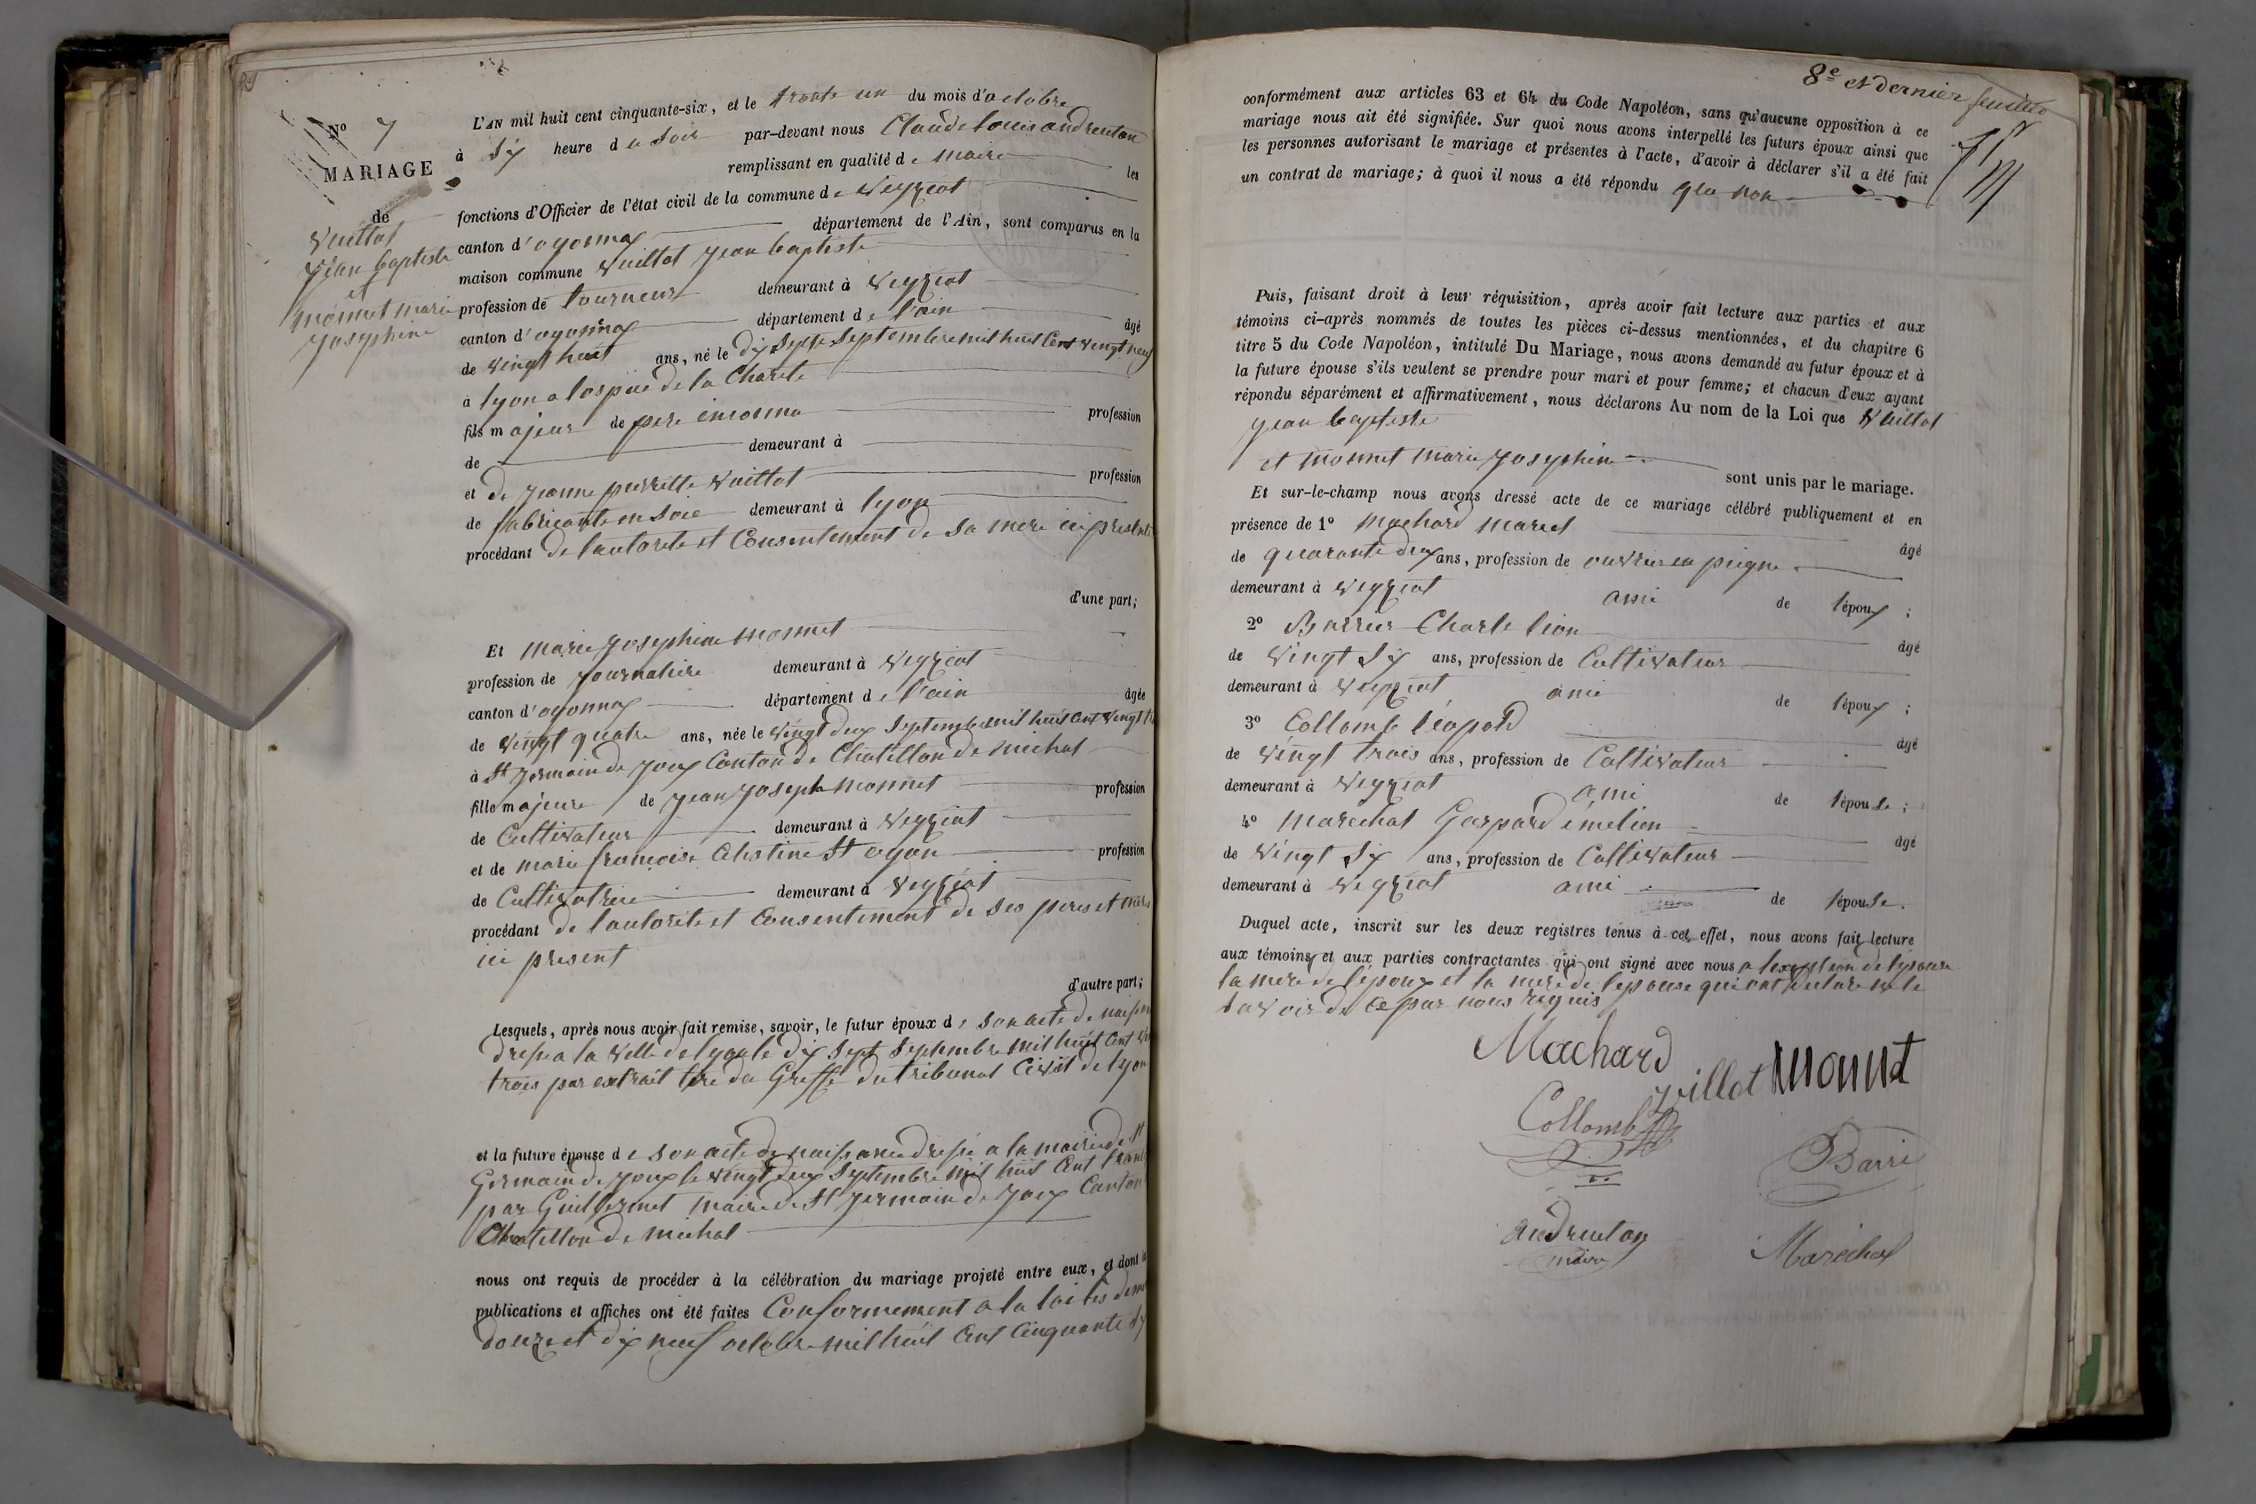 N° 7
MARIAGE
de
Vuillot
Jéan baptiste
et
monnet marie
josephine
L'AN mil huit cent cinquante-six, et le trente un du mois d'octobre
à six heure du soir par-devant nous Claude Louis andruton
remplissant en qualité de maire les
fonctions d'Officier de l'état civil de la commune de Veyziat
canton d'oyonnax département de l'Ain, sont comparus en la
maison commune Vuillot jean baptiste
profession de tourneur demeurant à Veyziat
canton d'oyonnax département de l'ain âgé
de vingt huit ans, né le dix sept septembre mil huit cent vingt
à lyon a lospice de la Charite
fils majeur de pere inconnu profession
de demeurant à
et de jeanne pierrette Vuillot profession
de fabricante en soie demeurant à lyon
procédant de lautorite et Consentement de sa mere ici presente
d'une part;
Et marie josephine monnet
profession de journaliere demeurant à Veyziat
canton d'oyonnax département de l'ain âgée
de vingt quatre ans, née le vingt deux septembre mil huit cent
à St jermain de joux Canton de Chatillon de michal
fille majeure de jean joseph monnet profession
de Cultivateur demeurant à Veyziat
et de marie francoise Celestine St oyon profession
de Cultivatrice demeurant à Veyziat
procédant de lautorite et Consentement de ses peres et mere
ici present
d'autre part;
Lesquels, après nous avoir fait remise, savoir, le futur époux de son acte de
dresse a la ville de lyon le dix sept septembre mil huit cent
trois par extrait tire du Greffe du tribunal Civil de lyon
et la future épouse de son acte de naissance dressé a la mairie de St
Germain de joux le vingt deux septembre mil huit cent trente
par Guillermet maire de St jermain de joux Canton
Chatillon de michal
nous ont requis de procéder à la célébration du mariage projeté entre eux, et dont
publications et affiches ont été faites Conformement a la loi les
douze et dix neuf octobre mil huit cent cinquante six
8e et dernier feuillet
conformément aux articles 63 et 64 du Code Napoléon, sans qu'aucune opposition à ce
mariage nous ait été signifiée. Sur quoi nous avons interpellé les futurs époux ainsi que
les personnes autorisant le mariage et présentes à l'acte, d'avoir à déclarer s'il a été fait
un contrat de mariage; à quoi il nous a été répondu que non
Puis, faisant droit à leur réquisition, après avoir fait lecture aux parties et aux
témoins ci-après nommés de toutes les pièces ci-dessus mentionnées, et du chapitre 6
titre 5 du Code Napoléon, intitulé Du Mariage, nous avons demandé au futur époux et à
la future épouse s'ils veulent se prendre pour mari et pour femme; et chacun d'eux ayant
répondu séparément et affirmativement, nous déclarons Au nom de la Loi que Vuillot
jean baptiste
et monnet marie josephine
sont unis par le mariage.
Et sur-le-champ nous avons dressé acte de ce mariage célébré publiquement et en
présence de 1° Machard marcel âgé
de quarante deux ans, profession de ouvrier en peigne
demeurant à Veyziat ami de l'époux;
2° Barrier Charle léon âgé
de vingt six ans, profession de Cultivateur
demeurant à Veyziat ami de l'époux;
3° Collomb léopold âgé
de vingt trois ans, profession de Cultivateur
demeurant à Veyziat ami de l'épouse;
4° maréchal Gaspard émelien âgé
de vingt six ans, profession de Cultivateur
demeurant à Veyziat ami de l'épouse.
Duquel acte, inscrit sur les deux registres tenus à cet effet, nous avons fait lecture
aux témoins et aux parties contractantes qui ont signé avec nous a lexception de lepouse
la mere de l'époux et la mere de lepouse qui ont declare ne le
savoir de ce par nous requis
Machard
vuillot monnet
Collomb
Barri
andruton
maire
Maréchal